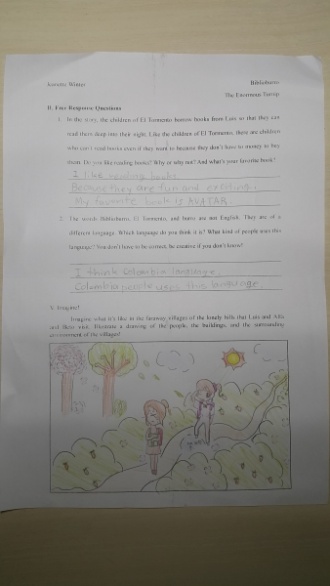 Jeanette Winter
Biblioburro
The Enormous Turnip
B. Free Response Questions
1. In the story, the children of El Tormento borrow books from Luis so that they can
read them deep into their night. Like the children of El Tormento, there are children
who can't read books even if they want to because they don't have to money to buy
them. Do you like reading books? Why or why not? And what's your favorite book?
I like reading books.
Because they are fun and exciting.
My favorite book is AVATAR
2. The words Biblioburro, El Tormento, and burro are not English. They are of a
different language. Which language do you think it is? What kind of people uses this
language? You don't have to be correct. Be creative if you don't know!
I think Columbia language.
Columbia people uses this language.
Imagine!
Imagine what it's like in the faraway villages of the lonely hills that Luis and Alfa
and Beto visit. Illustrate a drawing of the people, the buildings, and the surrounding
environment of the villages!